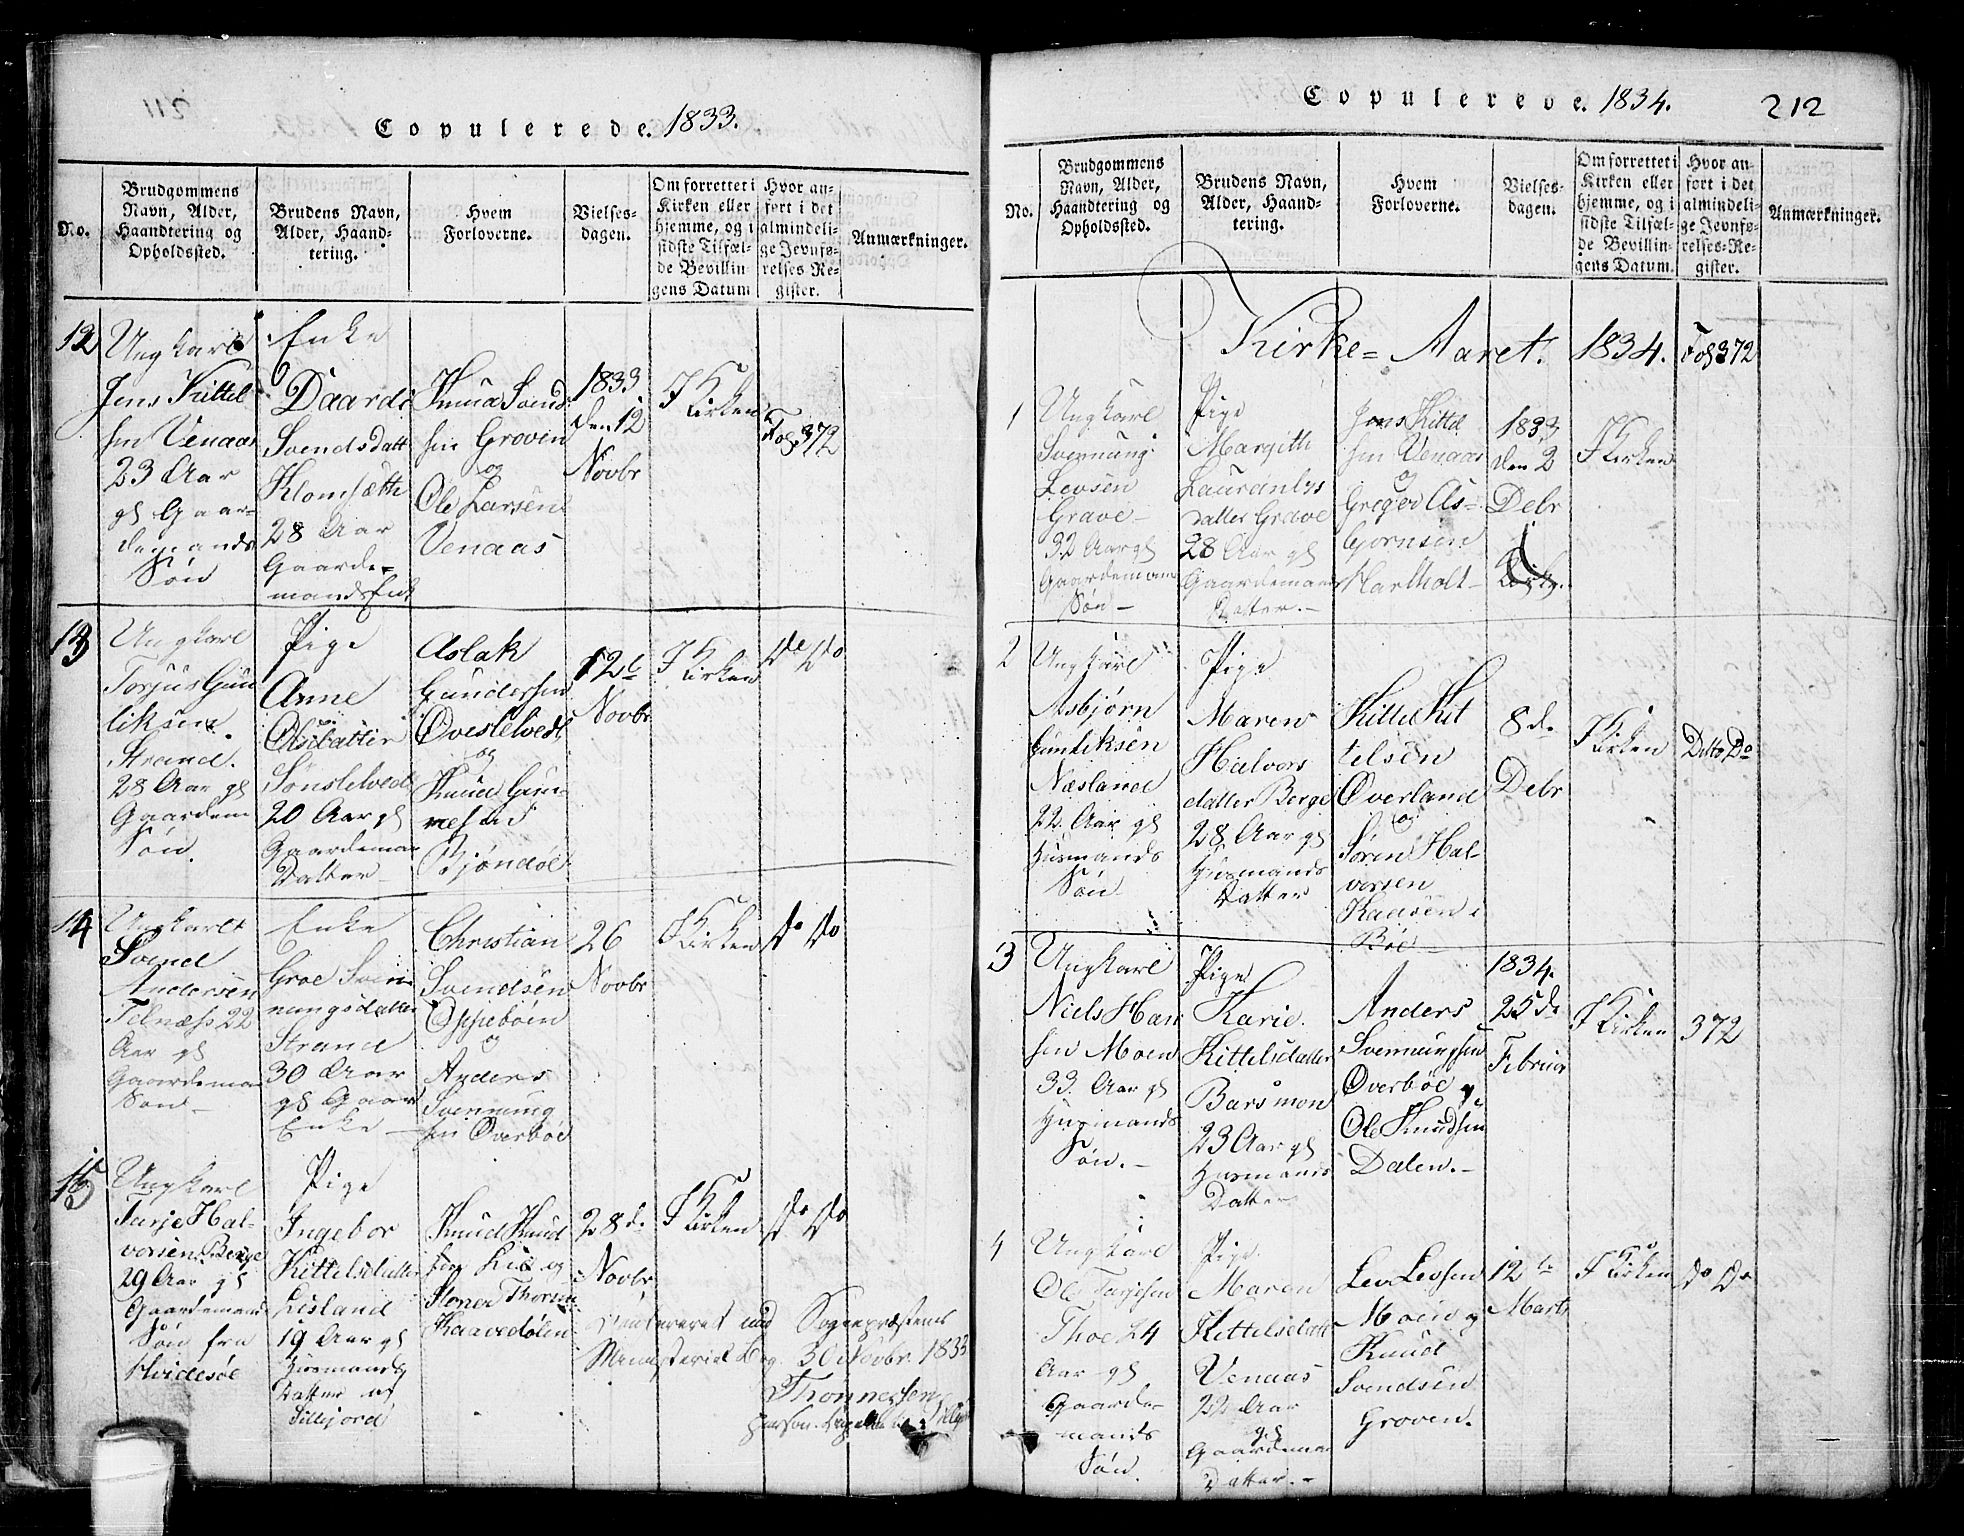 Copulerede. 1833.
No.
Brudgommens
Navn, Alder,
Haandtering og
Opholdssted.
Brudens Navn,
Alder, Haand-
tering.
Hvem
Forloverne.
Vielses-
dagen.
Om forrettet i
Kirken eller
hjemme, og i
sidste Tilfæl-
de Bevillin
gens Datum
Hvor an-
ført i det
almindeli-
ge Jevnfø-
relses Re-
gister.
Anmærkninger.
12
Ungkarl
Jens Kittel
sen Venaas
23 Aar
gl Gaar-
demands
Søn
Enke
Daarde
Svendsdatt
Klomsætte
28 Aar
Gaarde-
mands Enk
Knud Svend
sen Groven
og
Ole Larsen
Venaas
1833
den 12
Novbr
I Kirken
Fol 372
13
Ungkarl
Torjus Gun
liksen
Strand.
28 Aar gl
Gaardem
Søn.
Pige
Anne
Olsdatter
Sønstelvedt
20 Aar gl
Gaardeman
Datter
Aslak
Gundersen
Øvestelvedt
og
Knud Gun-
nesen
Bjøndøl
12te
Novbr
I Kirken
Do Do
14
Ungkarl
Svend
Andersen
Telnæss 22
Aar gl
Gaardeman
Søn
Enke
Groe Sven
nungsdatter
Strand
30 Aar
gl Gaar
Enke
Christian
Svendsen
Oppebøen
og
Anders
Svennung
sen Overbøe
26
Novbr
I Kirken
Do Do
15
Ungkarl
Tarje Hal-
vorsen Berge
29 Aar gl
Gaardemands
Søn fra
Hvidesøe
Pige
Ingebor
Kittelsdatter
Lisland
19 Aar gl
Husmands
Datter af
Sillejord
Knud Knud
sen Lie og
Steener Thorsen
Kaavedølen
28de
Novbr
I Kirken
Do Do
Confereret med Sognepræstens
Ministerial Bog. 30 Novbr. 1833
Thonnesen
Copulerede. 1834.
212
No.
Brudgommens
Navn, Alder,
Haandtering og
Opholdssted.
Brudens Navn,
Alder, Haand-
tering.
Hvem
Forloverne.
Vielses-
dagen.
Om forrettet i
Kirken eller
hjemme, og i
sidste Tilfæl-
de Bevillin
gens Datum.
Hvor an-
ført i det
almindeli-
ge Jevnfø-
relses-Re-
gister.
Anmærkninger.
Kirke-Aaret. 1834. Fol 372
1
Ungkarl
Svennung
Levsen
Grave
32 Aar gl
Gaardeman
Søn
Pige
Margith
Laurantss
datter Grave
28 Aar gl
Gaardeman
Datter.
Jens Kittel
sen Venaas
og
Greger As-
bjørnsen
Hartholt
1833
den 2
Debr
I Kirken
2
Ungkarl
Asbjørn
Gunliksen
Næsland
22 Aar gl
Husmands
Søn
Pige
Maren
Halvors
datter Berge
28 Aar gl
Husmands
Datter
Kittel Kit
telsen
Øverland
og
Søren Hal-
vorsen
Kaasen i
Bøe
8de
Debr
I Kirken
Ditto Do
3
Ungkarl
Niels Han
sen Moen
33 Aar gl
Husmands
Søn.
Pige
Karie
Kittelsdatter
Barsmon
23 Aar gl
Husmands
Datter
Anders
Svennungsen
Overbøe og
Ole Knudsen
Dalen.
1834.
25de
Februar
I Kirken
372
4
Ungkarl
Ole Tarjesen
Thoe 24
Aar gl
Gaarde-
mands
Søn.
Pige
Maren
Kittelsdatt
Venaas
22 Aar
gl
Gaardeman
Datter.
Lev Levsen
Moen og
Knud
Svendsen
Groven.
12te
Marts
I Kirken
Do Do